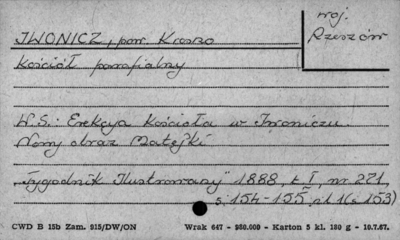 IWONICZ, pow. Krosno
woj.
Rzeszów
Kościół parafialny
W.S.: Erekcja Kościoła w Iwoniczu.
Nowy obraz Matejki
"Tygodnik Ilustrowany" 1888, t. I, nr 271
s. 154-155, il. 1 (s. 153)
CWD B 15b Zam. 915/DW/ON Wrak 647 - 980.000 - Karton 5 kl. 180 g - 10.7.67.